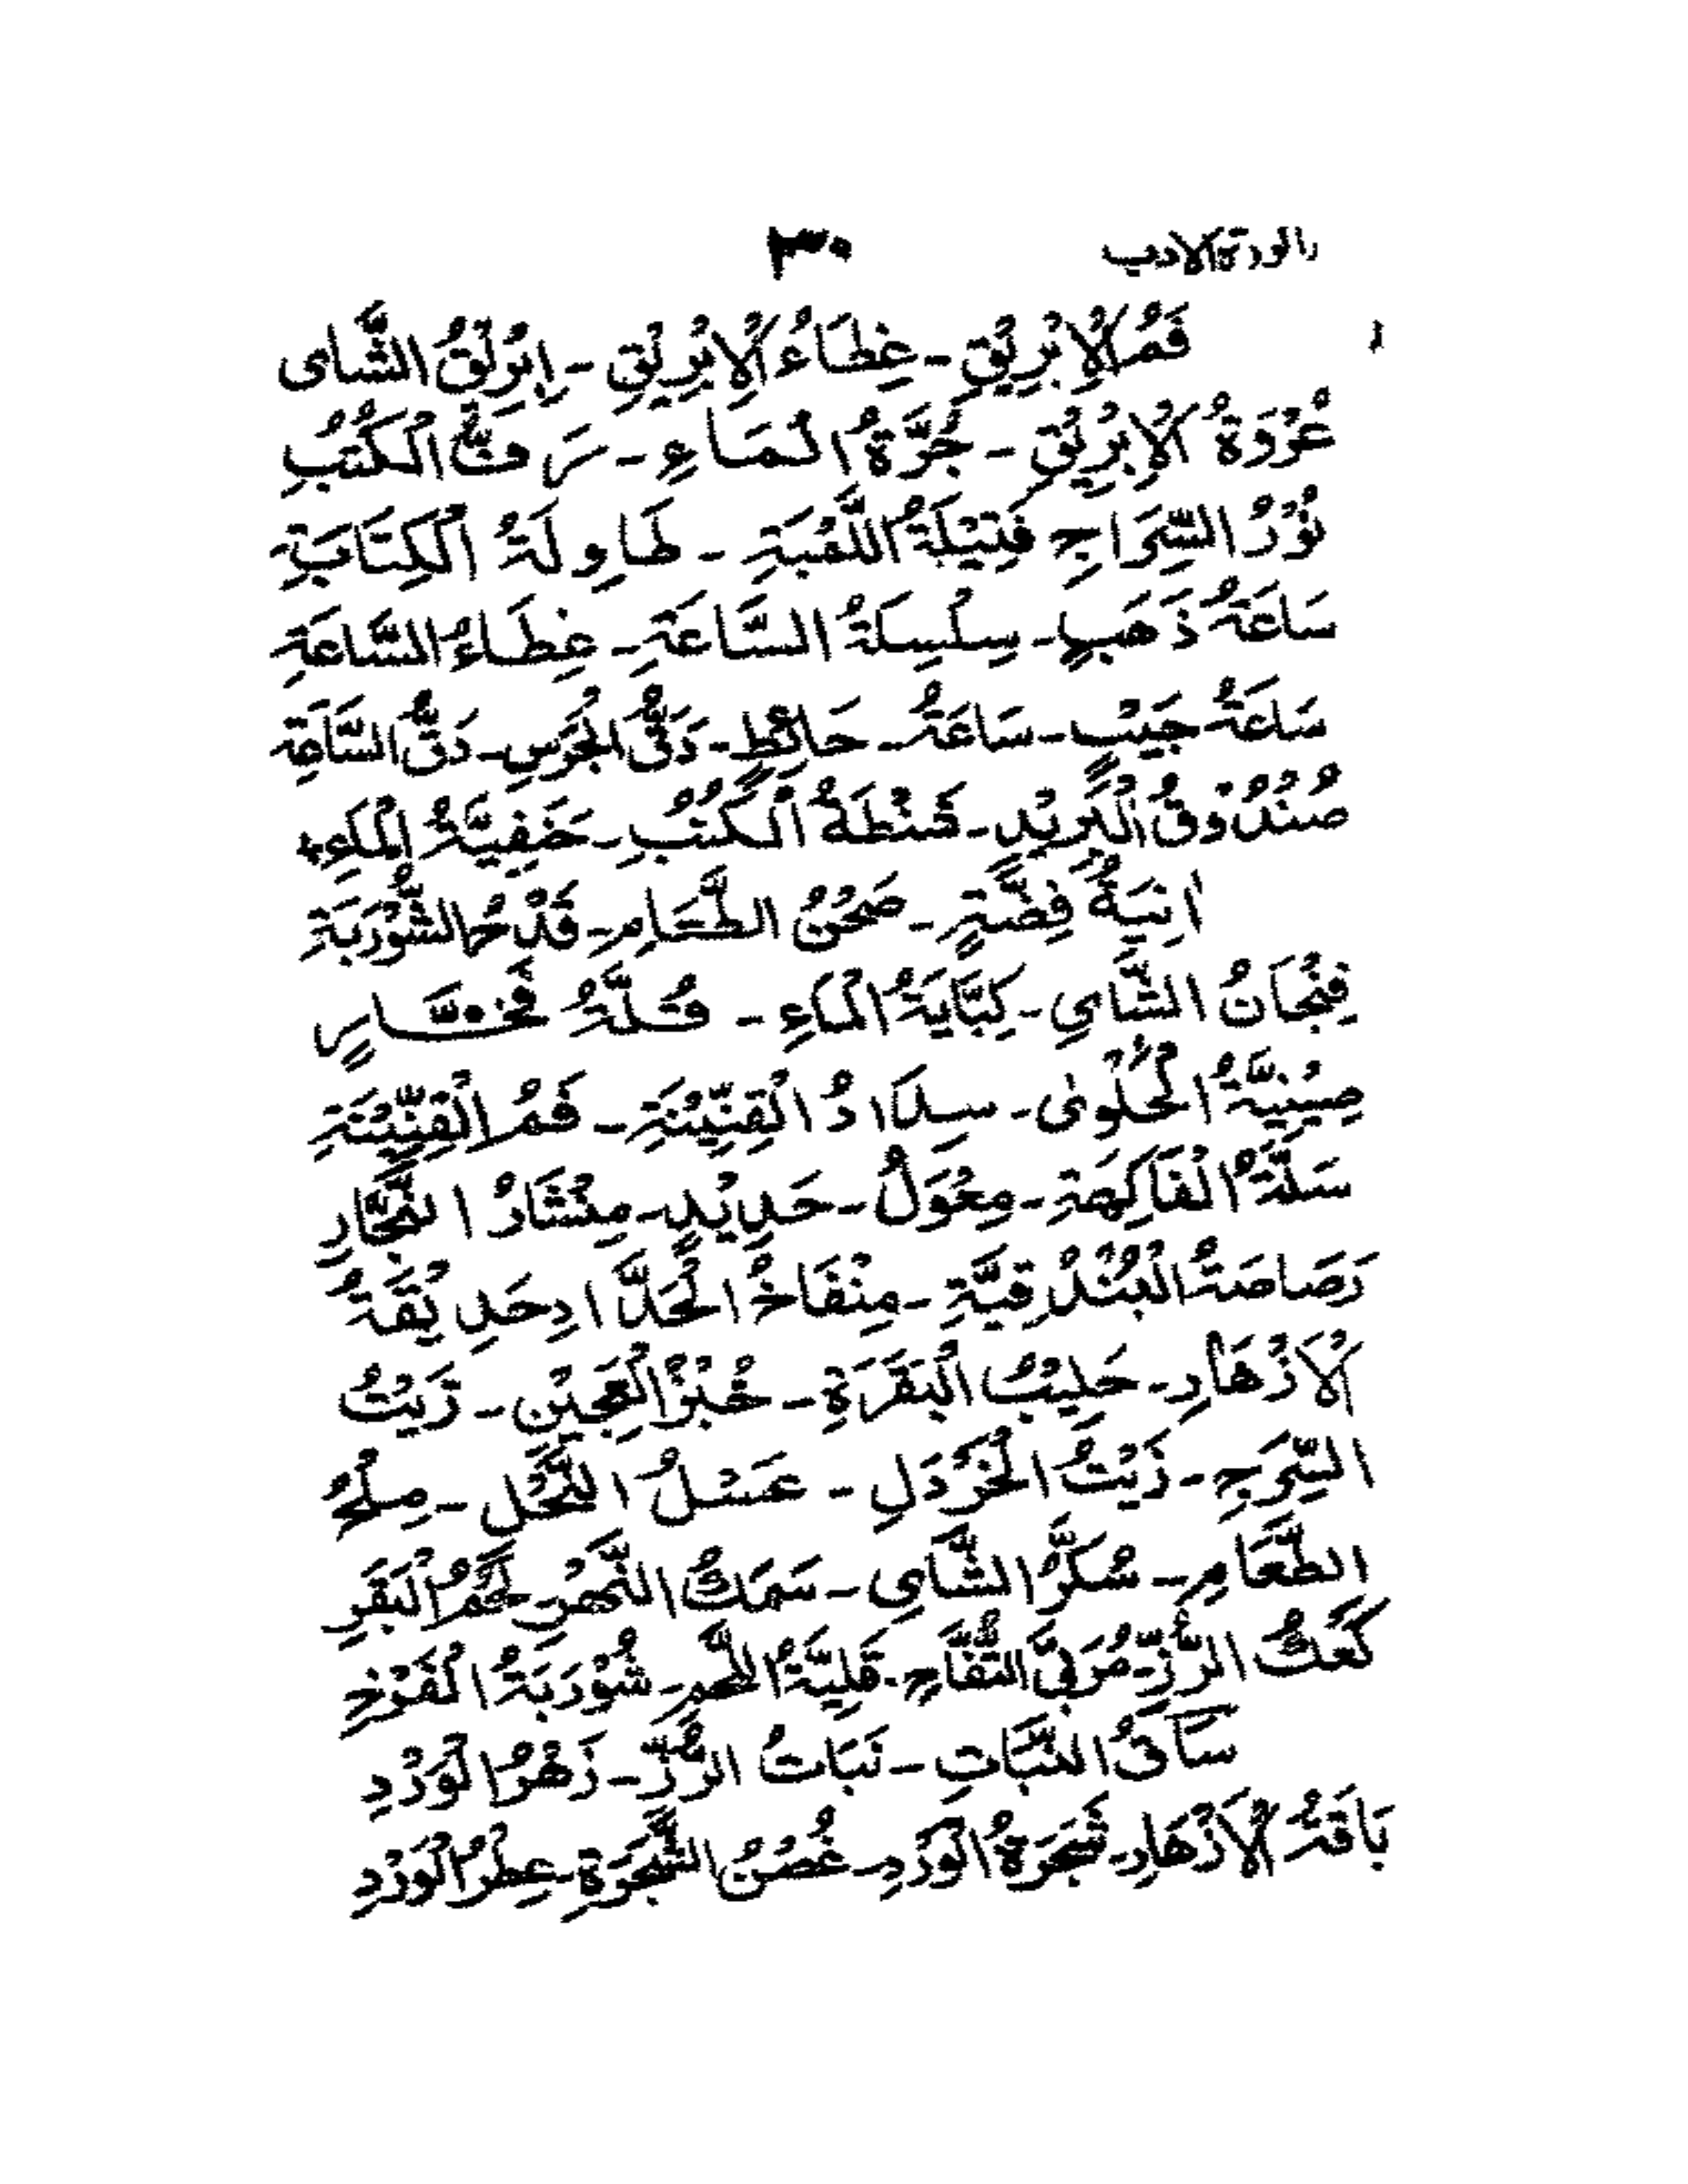 ٣٠
فَمُ الْاِبْرِيْقِ - غِطَاءُ الْاِبْرِيْقِ - اِبْرِيْقُ الشَّاى
عُرْوَةُ الْاِبْرِيْقِ - جُرَّةُ الْمَاءِ - رَفُّ الْكُتُبِ
نُوْرُ السِّرَاجِ فَتِيْلَةُ اللَّمْبَةِ - طَاوِلَةُ الْكِتَابَةِ
سَاعَةُ ذَهَبٍ - سِلْسِلَةُ السَّاعَةِ - غِطَاءُ السَّاعَةِ
سَاعَةُ جَيْبٍ - سَاعَةُ - حَائِطٍ - دَقُّ الْجَرَسِ - دَقُّ السَّاعَةِ
صُنْدُوْقُ الْبَرِيْدِ - شَنْطَةُ الْكُتُبِ - حَنَفِيَّةُ الْمَاءِ
اٰنِيَةُ فِضَّةٍ - صَحْنُ الطَّعَامِ - قَدْحُ الشُّوْرَبَةِ
فِنْجَانُ الشَّايِ - كِبَّايَةُ الْمَاءِ - قُلَّةُ فَخَّارٍ
صِيْنِيَّةُ الْحَلْوٰى - سِدَادُ الْقِنِّيْنَةِ - فَمُ الْقِنِّيْنَةِ
سَلَّةُ الْفَاكِهَةِ - مِعْوَلُ - حَدِيْدٍ - مِنْشَارُ النَّجَّارِ
رَصَاصَةُ الْبُنْدُقِيَّةِ - مِنْفَاخُ الْحَدَّادِ حَدِيْقَةُ
الْاَزْهَارِ - حَلِيْبُ الْبَقَرَةِ - خُبْزُ الْعَجِيْنِ - زَيْتُ
السِّرَجِ - زَيْتُ الْخَرْدَلِ - عَسْلُ النَّحْلِ - مِلْحُ
الطَّعَامِ - سُكَّرُ الشَّاىِ - سَمَكُ النَّهْرِ لَحْمُ الْبَقَرِ
كَعْكُ الرُّزِّ - مُرَبَّى التُّفَّاحِ - قَلِيَّةُ اللَّحْمِ - شُوْرَبَةُ الْفَرْخِ
سَاقُ النَّبَاتِ - نَبَاتُ الرُّزِّ - زَهْرُ الْوَرْدِ
بَاقَةُ الْاَزْهَارِ - شَجَرَةُ الْوَرْدِ - غُصْنُ الشَّجَرَةِ - عِطْرُ الْوَرْدِ